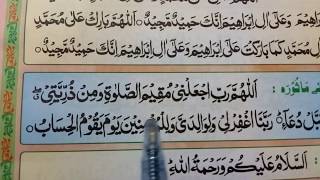 وَعَلٰٓى اٰلِ اِبْرَاهِيْمَ اِنَّكَ حَمِيْدٌ مَّجِيْدٌ اَللّٰهُمَّ بَارِكْ عَلٰى مُحَمَّدٍ
اٰلِ مُحَمَّدٍ كَمَا بَارَكْتَ عَلٰٓى اِبْرَاهِيْمَ وَعَلٰٓى اٰلِ اِبْرَاهِيْمَ اِنَّكَ حَمِيْدٌ مَّجِيْدٌ
ماثورہ : اَللّٰهُمَّ رَبِّ اجْعَلْنِيْ مُقِيْمَ الصَّلٰوةِ وَمِنْ ذُرِّيَّتِيْ
دُعَآءِ رَبَّنَا اغْفِرْلِيْ وَلِوَالِدَيَّ وَلِلْمُؤْمِنِيْنَ يَوْمَ يَقُوْمُ الْحِسَابُ
: اَلسَّلَامُ عَلَيْكُمْ وَرَحْمَةُ اللّٰهِ